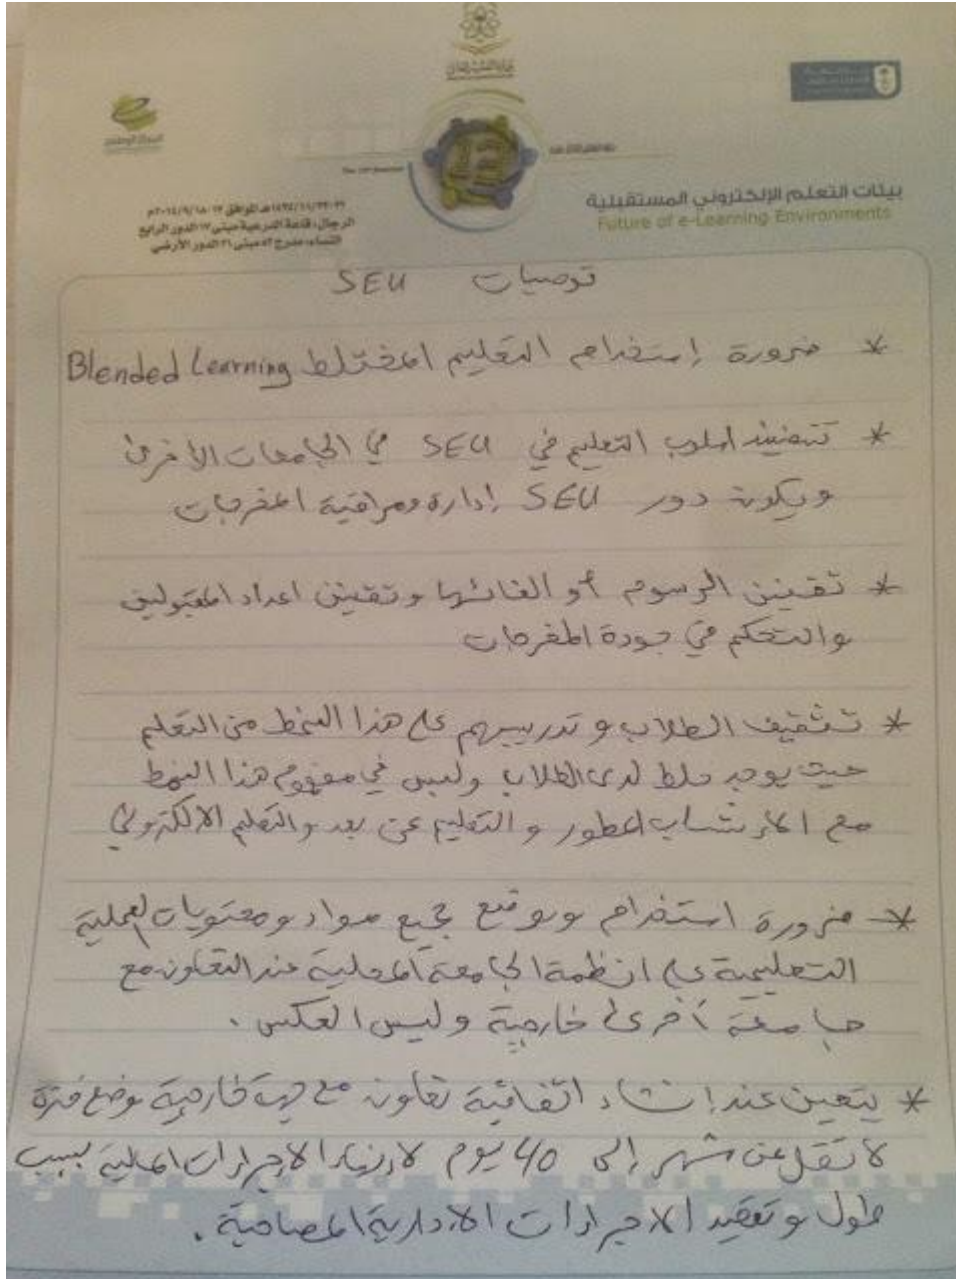 وزارة التعليم العالي
The 12th
بيئات التعلم الإلكتروني المستقبلية
Future of e-Learning Environments
الرجال، قاعة الدرعية مبنى ١٧ الدور الرابع
النساء، مدرج ٥٣ مبنى ٢١ الدور الأرضي
توصيات SEU
* ضرورة إستخدام التعليم المختلط Blended Learning
* تنفيذ اسلوب التعليم في SEU في الجامعات الأخرى
ويكون دور SEU إدارة ومراقبة المخرجات
* تقنين الرسوم أو الغائها وتقنين اعداد المقبولين
والتحكم في جودة المخرجات
* تثقيف الطلاب و تدريبهم على هذا النمط من التعلم
حيث يوجد خلط لدى الطلاب ولبس في مفهوم هذا النمط
مع الانتساب المطور و التعليم عن بعد والتعلم الالكتروني
* ضرورة استخدام ووضع جميع مواد ومحتويات العملية
التعليمية على انظمة الجامعة المحلية عند التعاون مع
جامعة أخرى خارجية وليس العكس.
* يتعين عند إنشاء اتفاقية تعاون مع جهة خارجية وضع فترة
لا تقل عن شهر إلى 40 يوم لإنهاء الاجراءات المالية بسبب
طول وتعقيد الاجراءات الادارية المصاحبة.